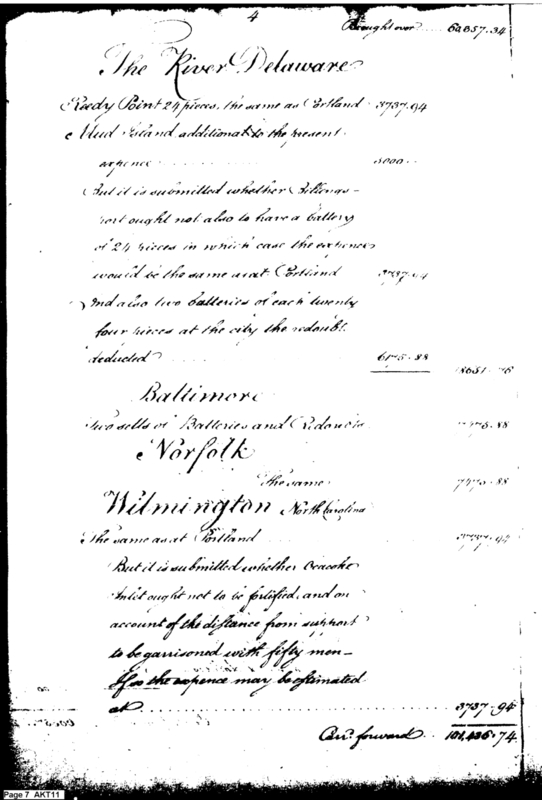 4
Brought over ..... 60,857.34
The River Delaware
Reedy Point 24 pieces, the same as Portland 3737.94
Mud Island additional to the present
expence ......... 5000 ..
But it is submitted whether Billings-
port ought not also to have a battery
of 24 pieces in which case the expence
would be the same as at Portland 3737.94
And also two batteries of each twenty
four pieces at the city the redoubt
deducted ..... 6175.88
18651.76
Baltimore
Two setts of Batteries and Redoubts 7475.88
Norfolk
The same 7475.88
Wilmington North Carolina
The same as at Portland ..... 3737.94
But it is submitted whether Ocacoke
Inlet ought not to be fortified, and on
account of the distance from support
to be garrisoned with fifty men—
If so the expence may be estimated
at ............ 3737.94
Carr.d forward ... 101,436.74
Page 7 AKT11